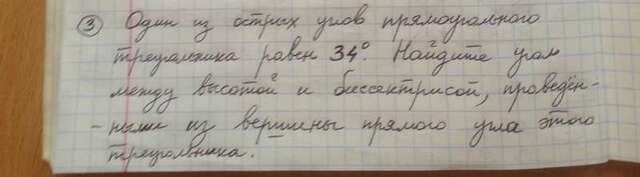 ③ Один из острых углов прямоугольного
треугольника равен 34°. Найдите угол
между высотой и биссектрисой, проведён-
-ными из вершины прямого угла этого
треугольника.